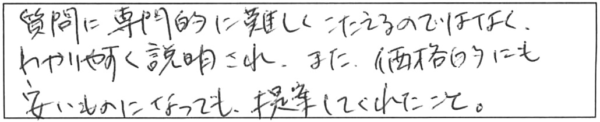 質問に専門的に難しくこたえるのではなく、
わかりやすく説明され、また、価格的にも
安いものになっても、提案してくれたこと。